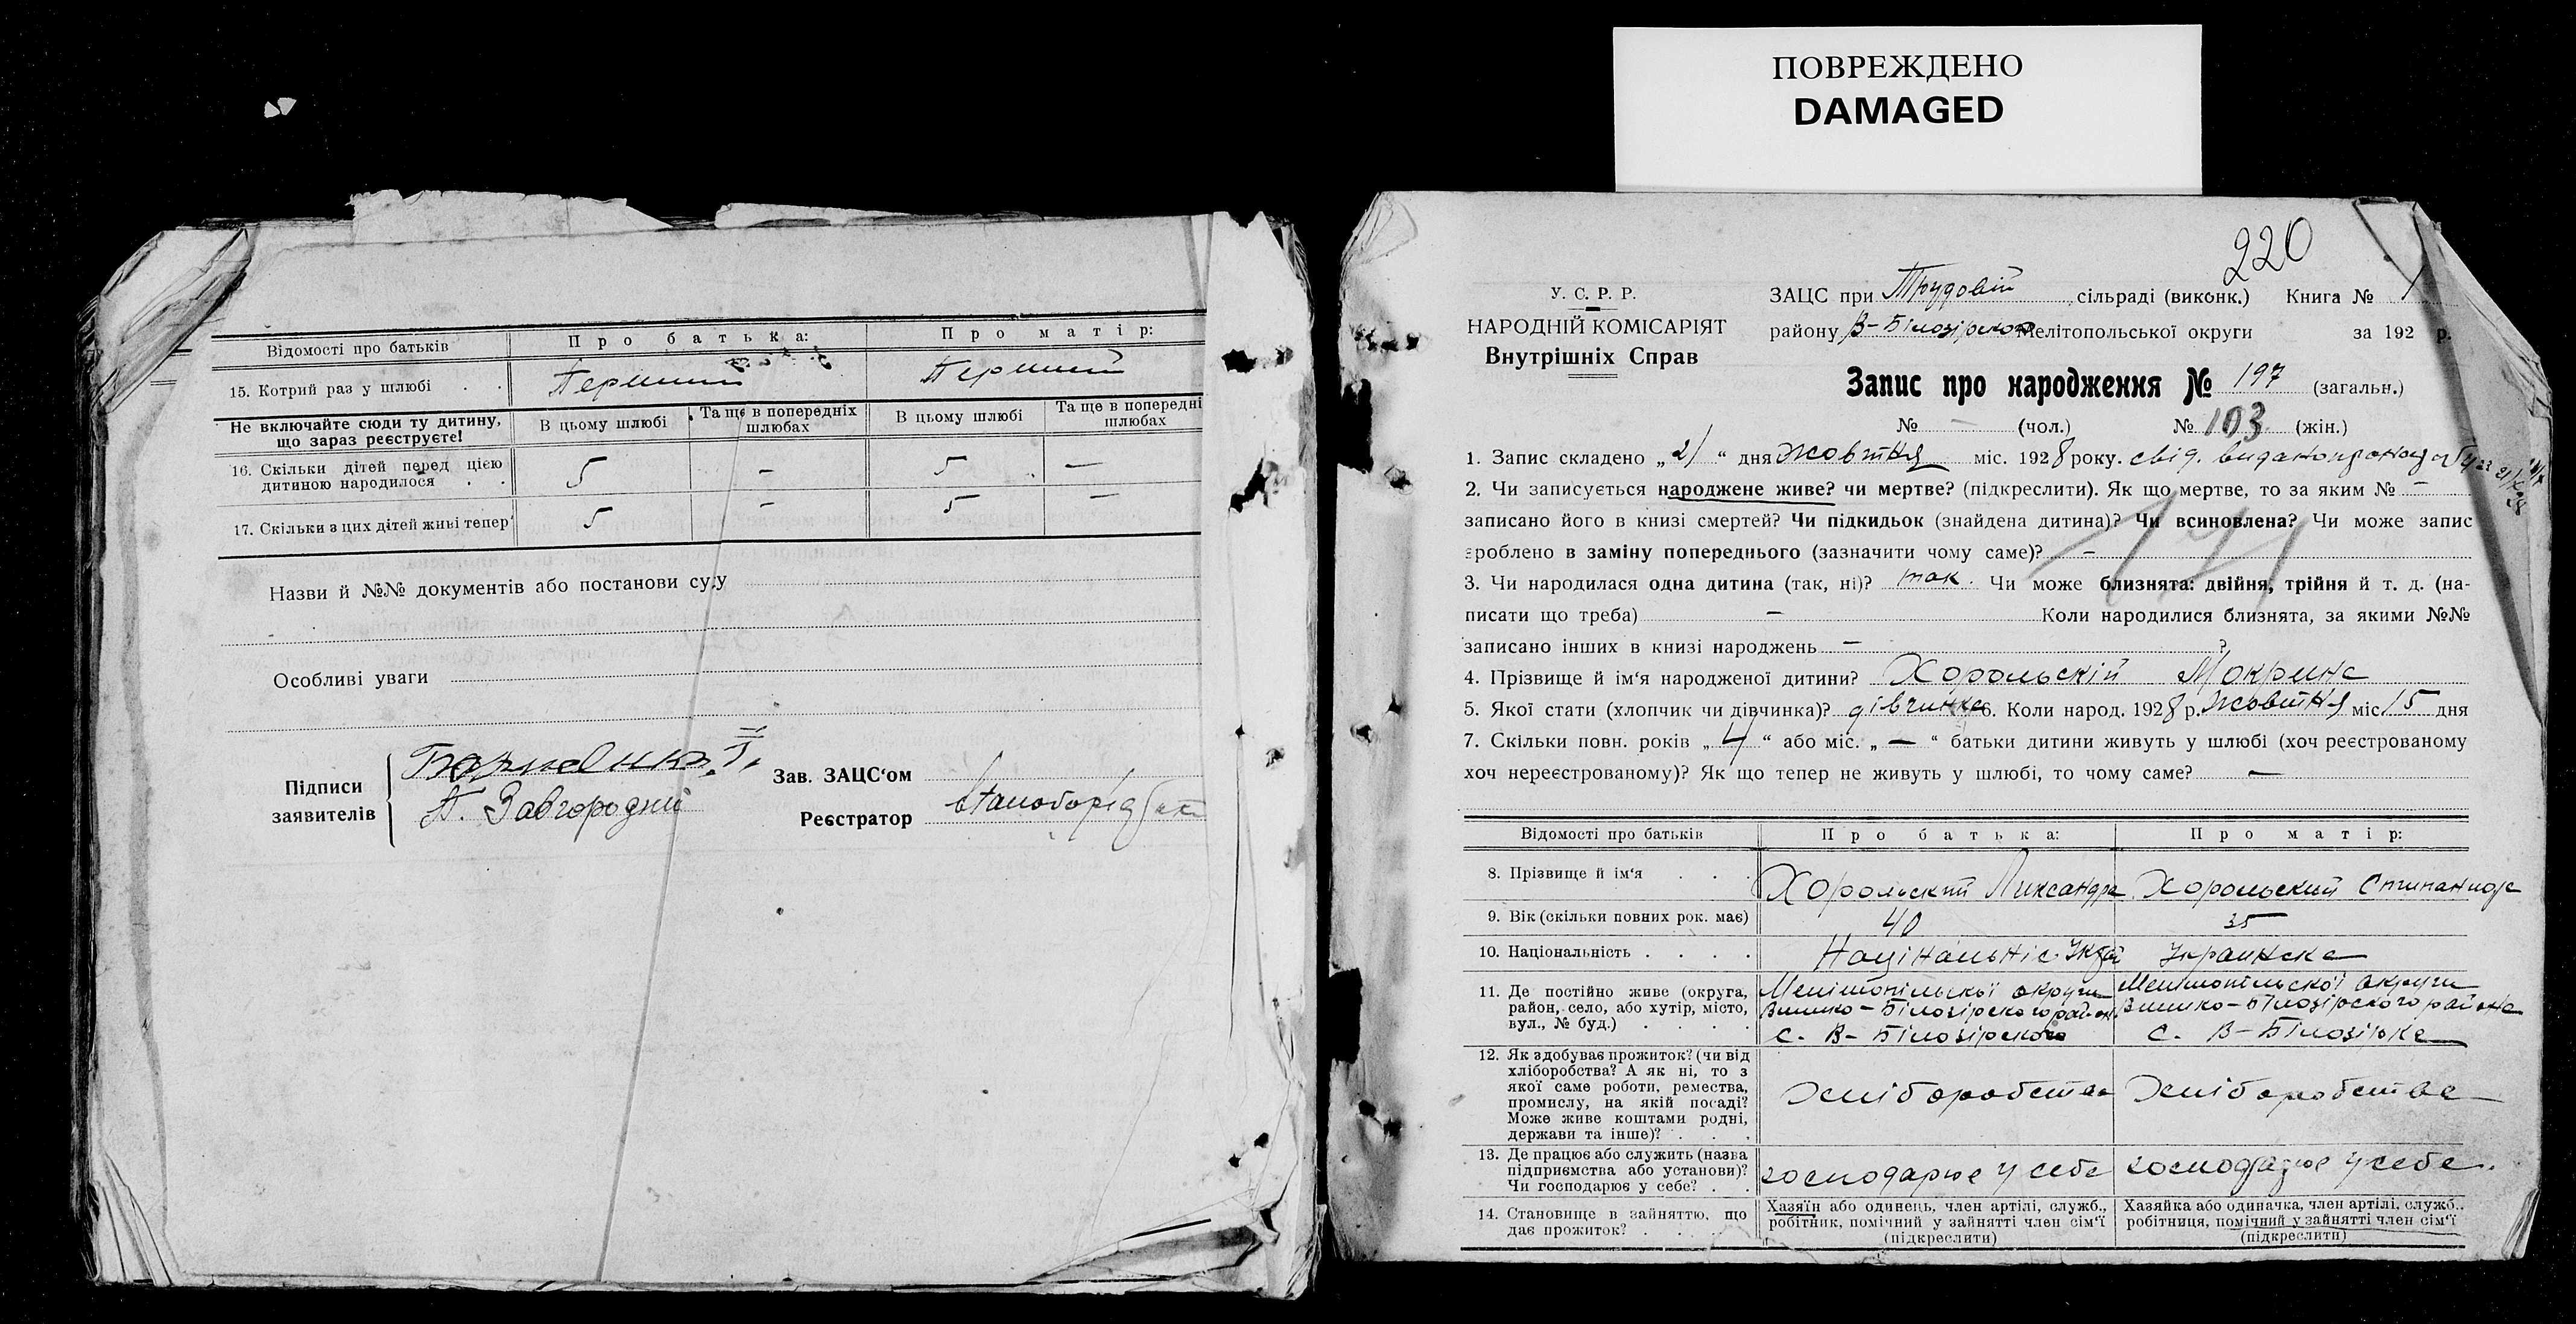 ПОВРЕЖДЕНО
DAMAGED
Відомості про батьків
Про батька:
Про матір:
15. Котрий раз у шлюбі . .
Первший
Первший
Не включайте сюди ту дитину, що зараз реєструєте!
В цьому шлюбі
Та ще в попередніх шлюбах
В цьому шлюбі
Та ще в попередні шлюбах
16. Скільки дітей перед цією
дитиною народилося . .
5 – 5 –
17. Скільки з цих дітей живі тепер
5 – 5 –
Назви й №№ документів або постанови суду
Особливі уваги
Підписи
заявителів
П. Завгородний
Зав. ЗАЦС‘ом
Реєстратор
220
У. С. Р. Р.
НАРОДНІЙ КОМІСАРІЯТ
Внутрішніх Справ
ЗАЦС при Трудовій сільраді (виконк.) Книга № 1
району В-Білозірского Мелітопольської округи за 192 р.
Запис про народження № 197 (загальн.)
№ – (чол.) № 103 (жін.)
1. Запис складено „21“ дня жовтня міс. 1928 року. свід. видано
2. Чи записується народжене живе? чи мертве? (підкреслити). Як що мертве, то за яким № –
записано його в книзі смертей? Чи підкидьок (знайдена дитина)? Чи всиновлена? Чи може запис
зроблено в заміну попереднього (зазначити чому саме)? –
3. Чи народилася одна дитина (так, ні)? так. Чи може близнята: двійня, трійня й т. д. (на-
писати що треба) – Коли народилися близнята, за якими №№
записано інших в книзі народжень – ?
4. Прізвище й ім‘я народженої дитини? Хорольскій Мокрина
5. Якої стати (хлопчик чи дівчинка)? дівчинка 6. Коли народ. 1928 р. жовтня міс 15 дня
7. Скільки повн. років „4“ або міс. „–“ батьки дитини живуть у шлюбі (хоч реєстрованому
хоч нереєстрованому)? Як що тепер не живуть у шлюбі, то чому саме? –
Відомості про батьків
Про батька:
Про матір:
8. Прізвище й ім‘я . . .
Хорольский Ликсандра
Хорольский Степанида
9. Вік (скільки повних рок. має)
40
35
10. Національність . . . .
Націнальніс. Укр
Украинска
11. Де постійно живе (округа,
район, село, або хутір, місто,
вул., № буд.) . . . .
Мелітопільскої округи
Вилико-Білозірского район.
с. В-Білозірского
Мелітопільскої округи
Вилико-Білозірского района
с. В-Білозірка
12. Як здобуває прожиток? (чи від
хліборобства? А як ні, то з
якої саме роботи, ремества,
промислу, на якій посаді?
Може живе коштами родні,
держави та інше)? . . .
Хліборобства
Хліборобства
13. Де працює або служить (назва
підприємства або установи)?
Чи господарює у себе? . .
господарює у себе
господарює у себе.
14. Становище в зайняттю, що
дає прожиток? . . .
Хазяїн або одинець, член артілі, служб.,
робітник, помічний у зайнятті член сім‘ї
(підкреслити)
Хазяйка або одиначка, член артілі, служб..
робітниця, помічний у зайнятті член сім‘ї
(підкреслити)